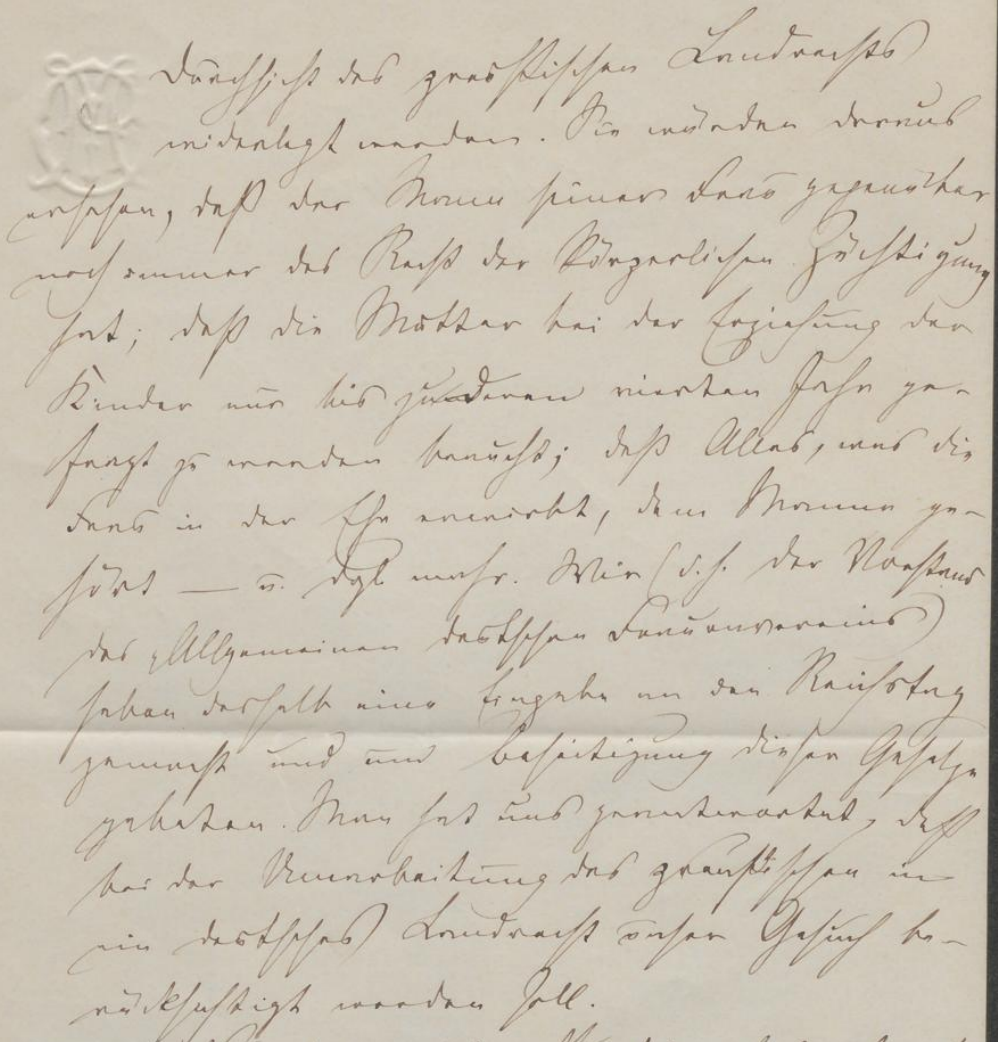 Durchsicht des preußischen Landrechts
widerlegt werden. Sie würden daraus
ersehen, daß der Mann seiner Frau gegenüber
noch immer das Recht der körperlichen Züchtigung
hat; daß die Mutter bei der Erziehung der
Kinder nur bis zu deren vierten Jahr ge-
fragt zu werden braucht; daß Alles, was die
Frau in der Ehe erwirbt, dem Manne ge-
hört — u. dgl mehr. Wir (d. h. der Vorstand
des „Allgemeinen deutschen Frauenvereins)
haben deshalb eine Eingabe an den Reichstag
gemacht und um Beseitigung dieser Gesetze
gebeten. Man hat uns geantwortet, daß
bei der Umarbeitung des preußischen in
ein deutsches Landrecht unser Gesuch be-
rücksichtigt werden soll.